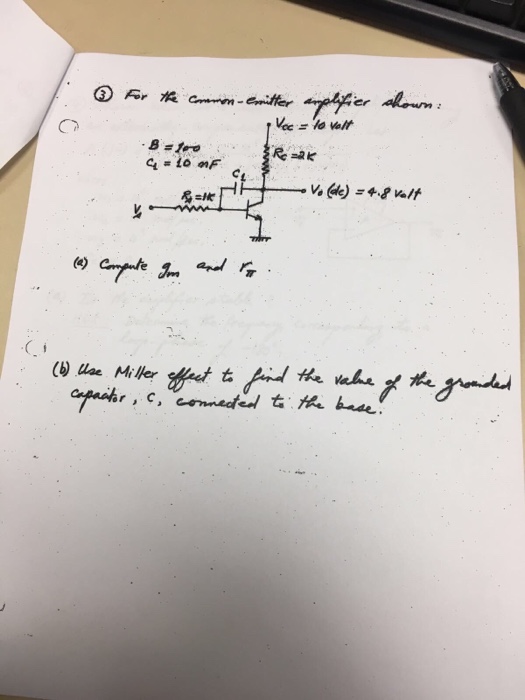 ③ For the common-emitter amplifier shown:
Vcc = 10 volt
B = 100
C₁ = 10 nF
Rc = 2K
C₁
R₁ = 1K
Vo (dc) = 4.8 Volt
(a) Compute gm and rπ.
(b) Use Miller effect to find the value of the grounded
capacitor, C, connected to the base.